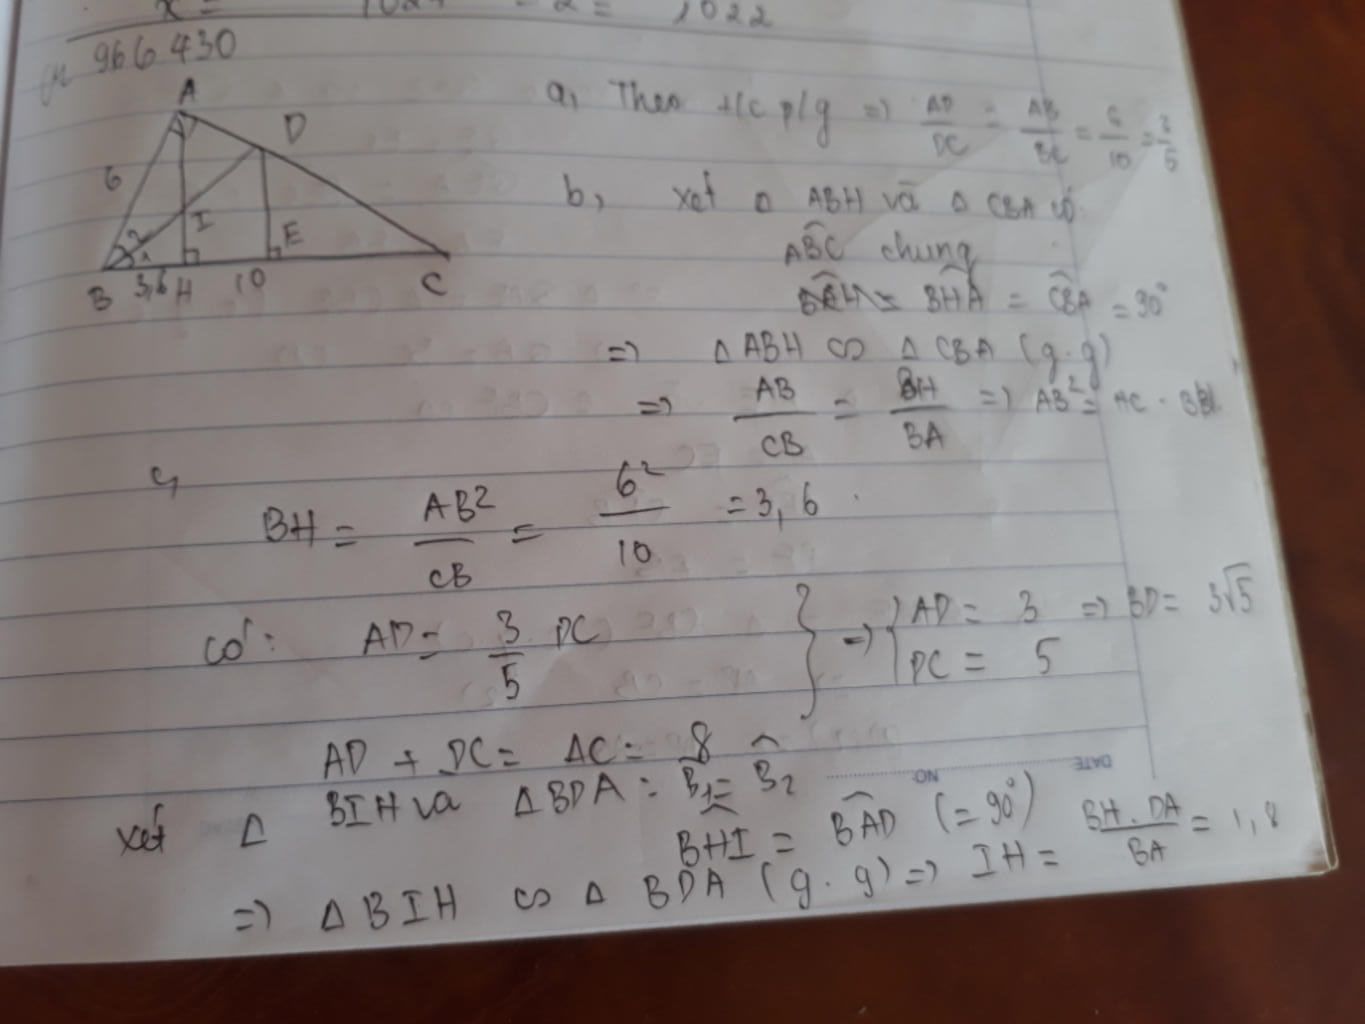 x = 1024 - 2 = 1022
966430
A
D
6
I
E
2
1
B 3,6 H 10 C
a, Theo t/c p/g => AD/DC = AB/BC = 6/10 = 3/5
b, xét Δ ABH và Δ CBA có
ABC chung
BHA = CBA = 90°
=> Δ ABH ∽ Δ CBA (g.g)
=> AB/CB = BH/BA => AB² = AC . BH
c,
BH = AB²/CB = 6²/10 = 3,6 .
có: AD = 3/5 DC } => { AD = 3 => BD = 3√5
DC = 5
AD + DC = AC = 8
xét Δ BIH và Δ BDA : B̂1 = B̂2
BHI = BAD (= 90°)
=> Δ BIH ∽ Δ BDA (g.g) => IH = BH.DA/BA = 1,8
NO.
DATE